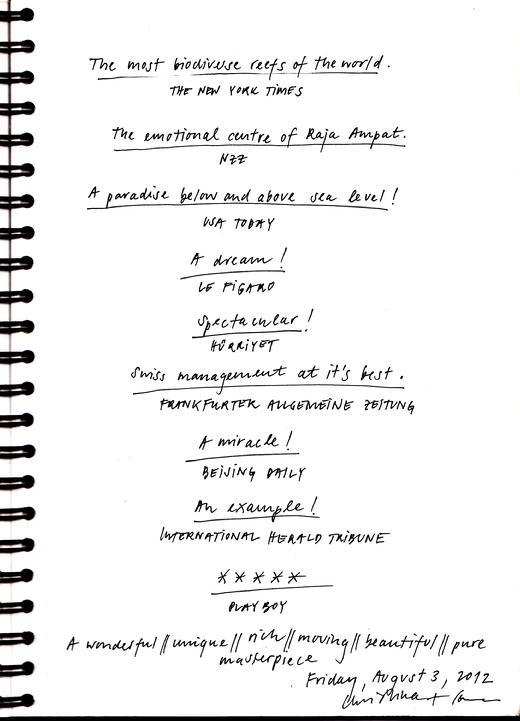 The most biodiverse reefs of the world.
THE NEW YORK TIMES
The emotional centre of Raja Ampat.
NZZ
A paradise below and above sea level!
USA TODAY
A dream!
LE FIGARO
Spectacular!
HÜRRIYET
Swiss management at it's best.
FRANKFURTER ALLGEMEINE ZEITUNG
A miracle!
BEIJING DAILY
An example!
INTERNATIONAL HERALD TRIBUNE
*****
PLAYBOY
A wonderful || unique || rich || moving || beautiful || pure
masterpiece
Friday, August 3, 2012